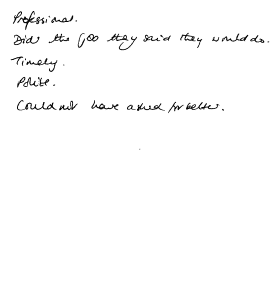 Professional.
Did the job they said they would do.
Timely.
Polite.
Could not have asked for better.